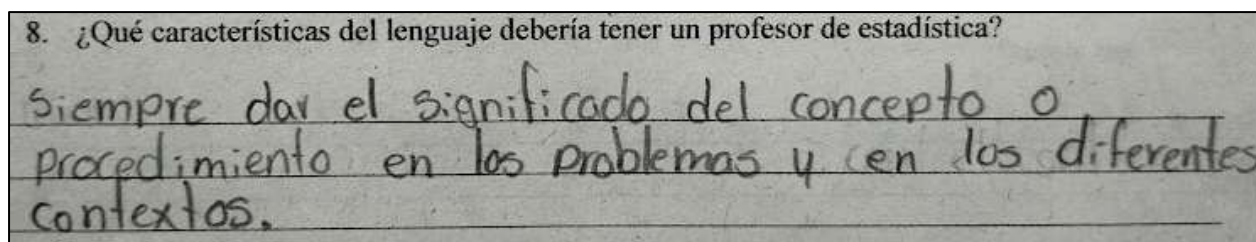 8. ¿Qué características del lenguaje debería tener un profesor de estadística?
Siempre dar el significado del concepto o
procedimiento en los problemas y en los diferentes
contextos.